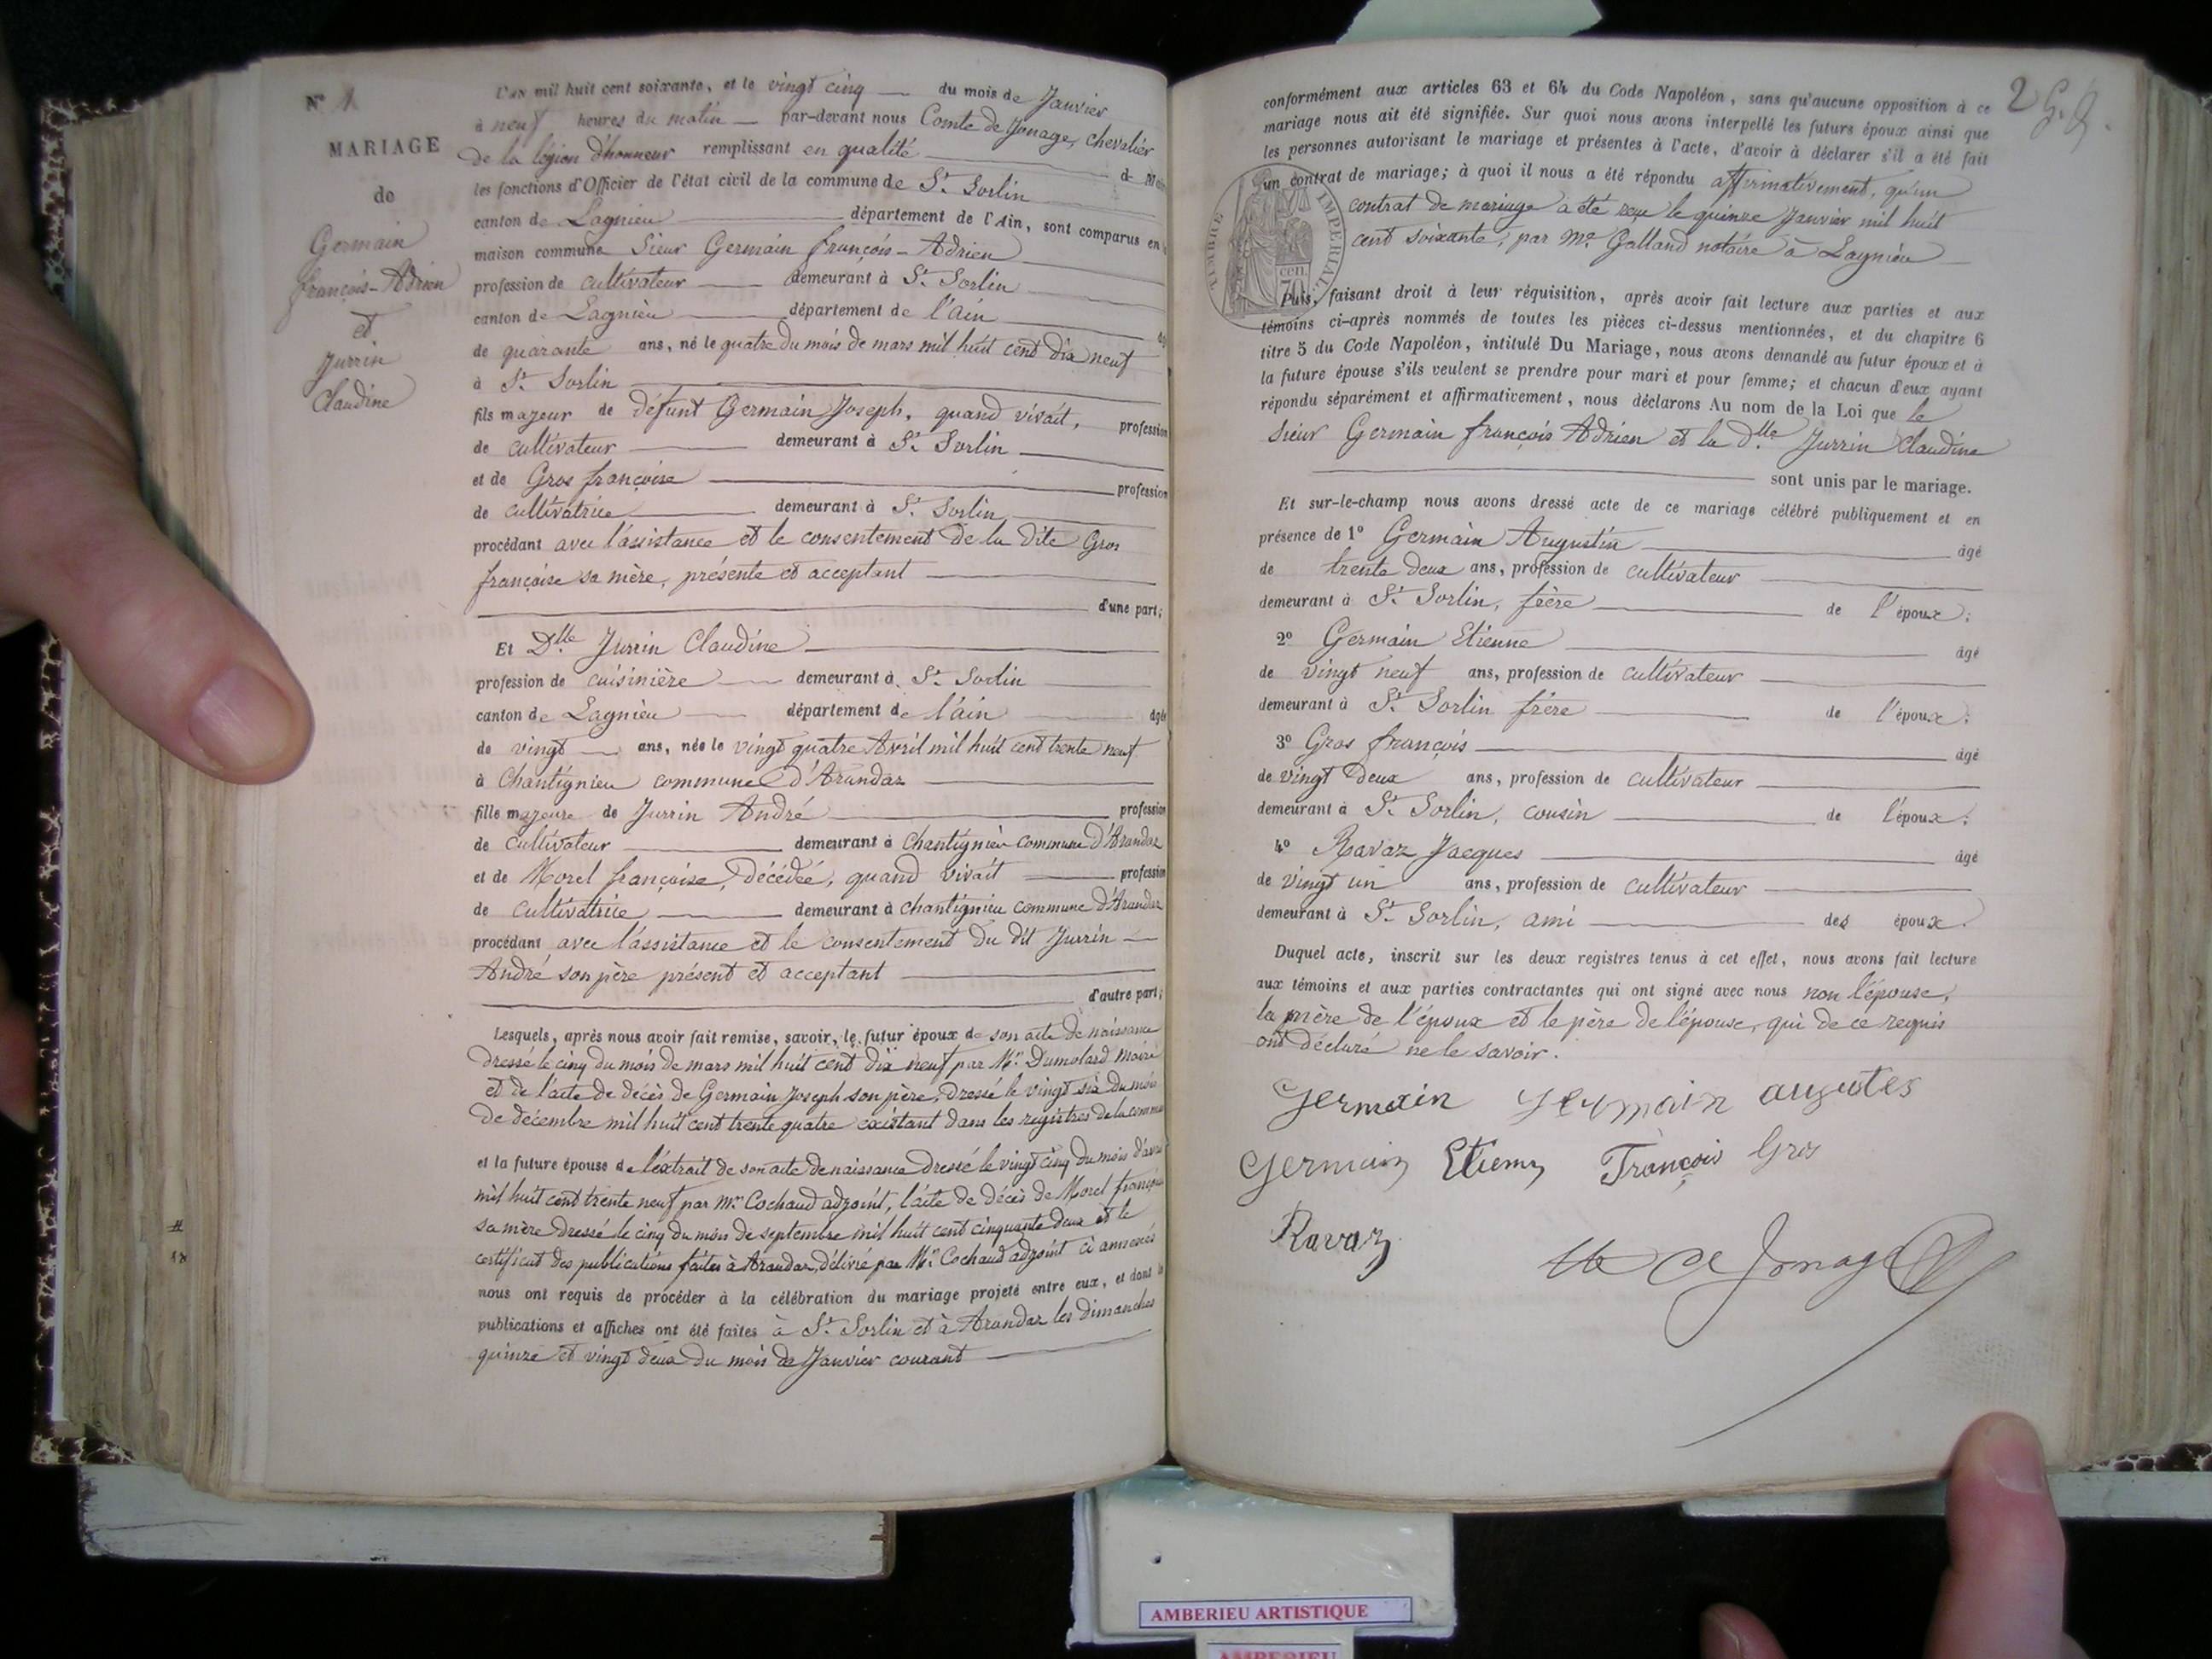 N° 1
MARIAGE
de
Germain
françois-Adrien
et
Jurrin
Claudine
L'an mil huit cent soixante, et le vingt cinq du mois de Janvier
à neuf heures du matin par-devant nous Comte de Jonage, chevalier
de la légion d'honneur remplissant en qualité de
les fonctions d'Officier de l'état civil de la commune de St Sorlin
canton de Lagnieu département de l'Ain, sont comparus en
maison commune Sieur Germain françois-Adrien
profession de cultivateur demeurant à St Sorlin
canton de Lagnieu département de l'ain
de quarante ans, né le quatre du mois de mars mil huit cent dix neuf
à St Sorlin
fils majeur de défunt Germain Joseph, quand vivait, profession
de cultivateur demeurant à St Sorlin
et de Gros françoise profession
de cultivatrice demeurant à St Sorlin
procédant avec l'assistance et le consentement de la dite Gros
françoise sa mère, présente et acceptant
d'une part;
Et Dlle Jurrin Claudine
profession de cuisinière demeurant à St Sorlin
canton de Lagnieu département de l'ain âgée
de vingt ans, née le vingt quatre Avril mil huit cent trente neuf
à Chantignieu commune d'Arandaz
fille majeure de Jurrin André profession
de cultivateur demeurant à Chantignieu commune d'Arandaz
et de Morel françoise, décédée, quand vivait profession
de cultivatrice demeurant à chantignieu commune d'Arandaz
procédant avec l'assistance et le consentement du dit Jurrin
André son père présent et acceptant
d'autre part;
Lesquels, après nous avoir fait remise, savoir, le futur époux de son acte de naissance
dressé le cinq du mois de mars mil huit cent dix neuf par Mr Dumolard maire
et de l'acte de décès de Germain Joseph son père, dressé le vingt six du mois
de décembre mil huit cent trente quatre existant dans les registres de la commune
et la future épouse de l'extrait de son acte de naissance dressé le vingt cinq du mois d'avril
mil huit cent trente neuf par Mr Cochaud adjoint, l'acte de décès de Morel françoise
sa mère dressé le cinq du mois de septembre mil huit cent cinquante deux et le
certificat des publications faites à Arandaz, délivré par Mr Cochaud adjoint ci annexés
nous ont requis de procéder à la célébration du mariage projeté entre eux, et dont
publications et affiches ont été faites à St Sorlin et à Arandaz les dimanches
quinze et vingt deux du mois de Janvier courant
2
conformément aux articles 63 et 64 du Code Napoléon, sans qu'aucune opposition à ce
mariage nous ait été signifiée. Sur quoi nous avons interpellé les futurs époux ainsi que
les personnes autorisant le mariage et présentes à l'acte, d'avoir à déclarer s'il a été fait
un contrat de mariage; à quoi il nous a été répondu affirmativement, qu'un
contrat de mariage a été reçu le quinze Janvier mil huit
cent soixante, par Me Galland notaire à Lagnieu
TIMBRE IMPÉRIAL
cen.
70
Puis, faisant droit à leur réquisition, après avoir fait lecture aux parties et aux
témoins ci-après nommés de toutes les pièces ci-dessus mentionnées, et du chapitre 6
titre 5 du Code Napoléon, intitulé Du Mariage, nous avons demandé au futur époux et à
la future épouse s'ils veulent se prendre pour mari et pour femme; et chacun d'eux ayant
répondu séparément et affirmativement, nous déclarons Au nom de la Loi que le
sieur Germain françois Adrien et la Dlle Jurrin Claudine
sont unis par le mariage.
Et sur-le-champ nous avons dressé acte de ce mariage célébré publiquement et en
présence de 1° Germain Augustin âgé
de trente deux ans, profession de cultivateur
demeurant à St Sorlin, frère de l'époux;
2° Germain Etienne âgé
de vingt neuf ans, profession de cultivateur
demeurant à St Sorlin frère de l'époux;
3° Gros françois âgé
de vingt deux ans, profession de cultivateur
demeurant à St Sorlin, cousin de l'époux;
4° Ravaz Jacques âgé
de vingt un ans, profession de cultivateur
demeurant à St Sorlin, ami des époux.
Duquel acte, inscrit sur les deux registres tenus à cet effet, nous avons fait lecture
aux témoins et aux parties contractantes qui ont signé avec nous non l'épouse,
la mère de l'époux et le père de l'épouse, qui de ce requis
ont déclaré ne le savoir.
Germain Germain augustes
Germain Etienn François Gros
Ravaz
de Jonage
AMBERIEU ARTISTIQUE
AMBERIEU